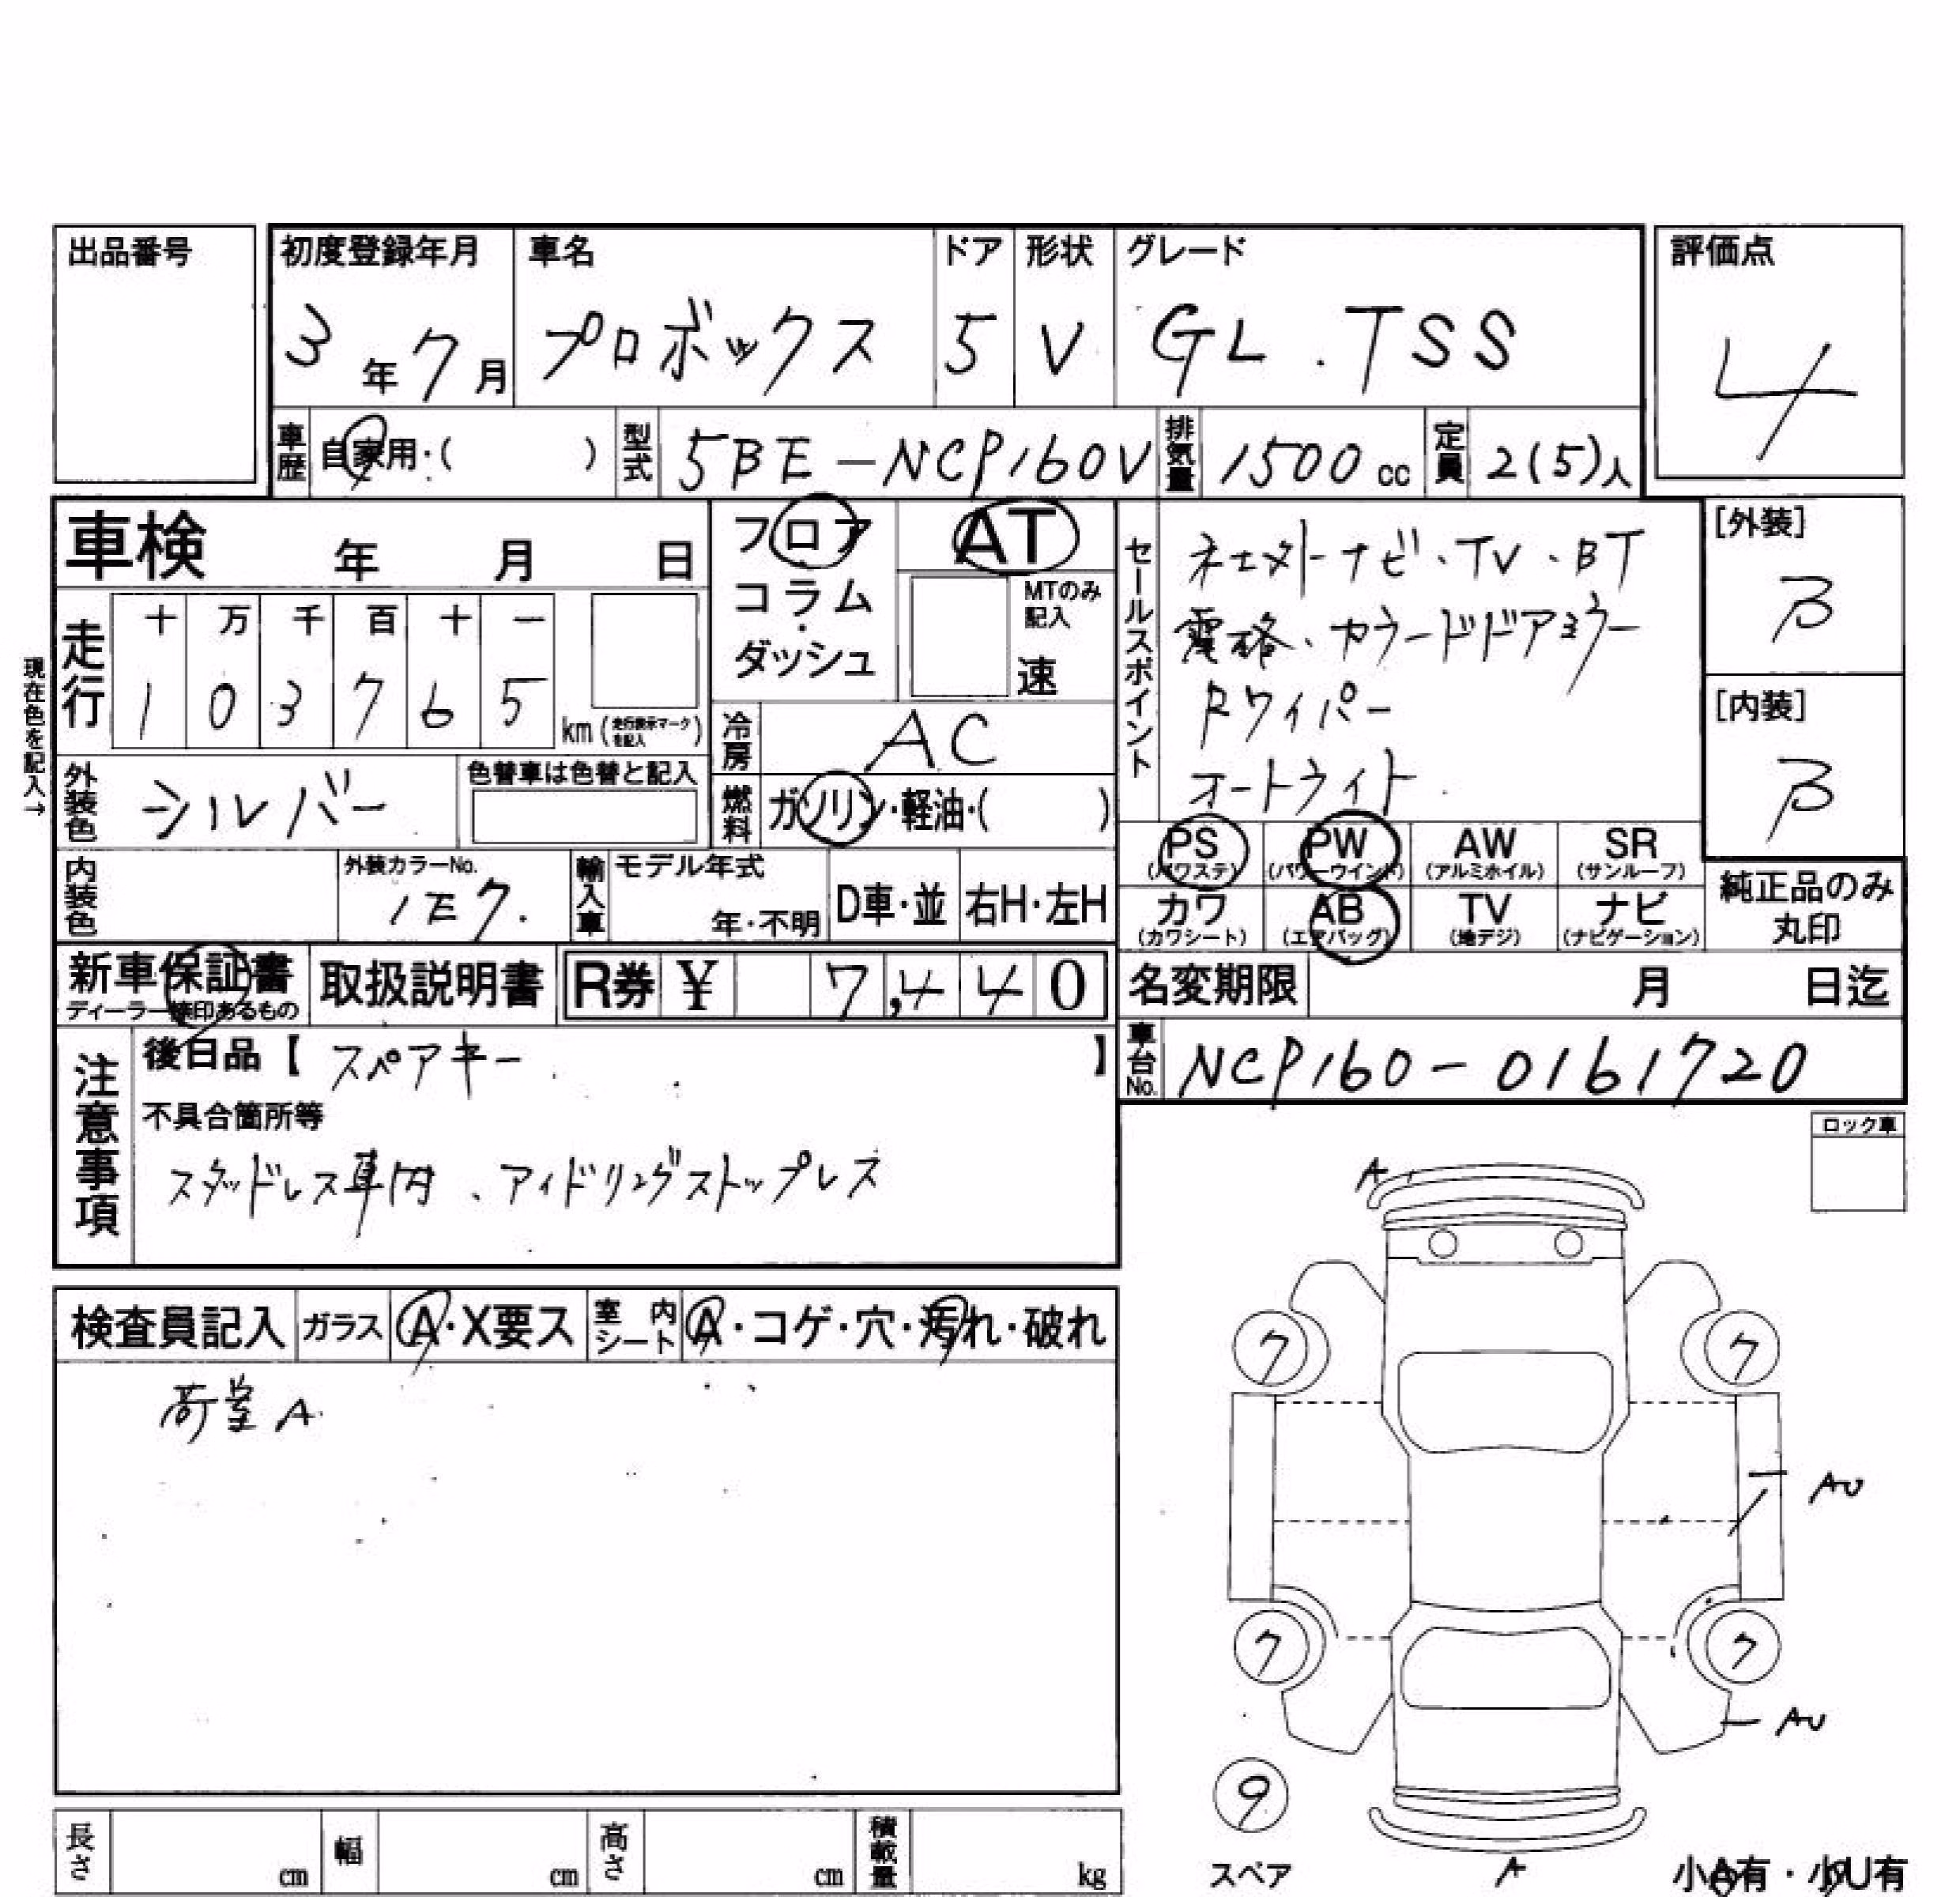 出品番号
初度登録年月 車名 ドア 形状 グレード 評価点
3年7月 プロボックス 5 V GL.TSS 4
車歴 自家用・( ) 型式 5BE-NCP160V 排気量 1500cc 定員 2(5)人
車検 年 月 日
フロア・コラム・ダッシュ AT
MTのみ記入 速
現在色を記入→
走行 十 万 千 百 十 一
1 0 3 7 6 5 km(走行表示マークを記入)
冷房 AC
外装色 シルバー 色替車は色替と記入
燃料 ガソリン・軽油・( )
内装色 外装カラーNo. 1E7. 輸入車 モデル年式 年・不明 D車・並 右H・左H
セールスポイント
ナビ・TV・BT
電格、カラードドアミラー
Rワイパー
オートライト
[外装]
B
[内装]
B
PS(パワステ) PW(パワーウインド) AW(アルミホイル) SR(サンルーフ)
カワ(カワシート) AB(エアバッグ) TV(地デジ) ナビ(ナビゲーション)
純正品のみ丸印
新車保証書 ディーラー捺印あるもの 取扱説明書 R券 ¥ 7,440
名変期限 月 日迄
車台No. NCP160-0161720
注意事項
後日品【 スペアキー 】
不具合箇所等
スタッドレス車内、アイドリングストップレス
ロック車
検査員記入 ガラス A・X要ス 室内シート A・コゲ・穴・汚れ・破れ
荷室A
A
7 7
AU
7 7
AU
9
スペア
A
小A有・小U有
長さ cm 幅 cm 高さ cm 積載量 kg